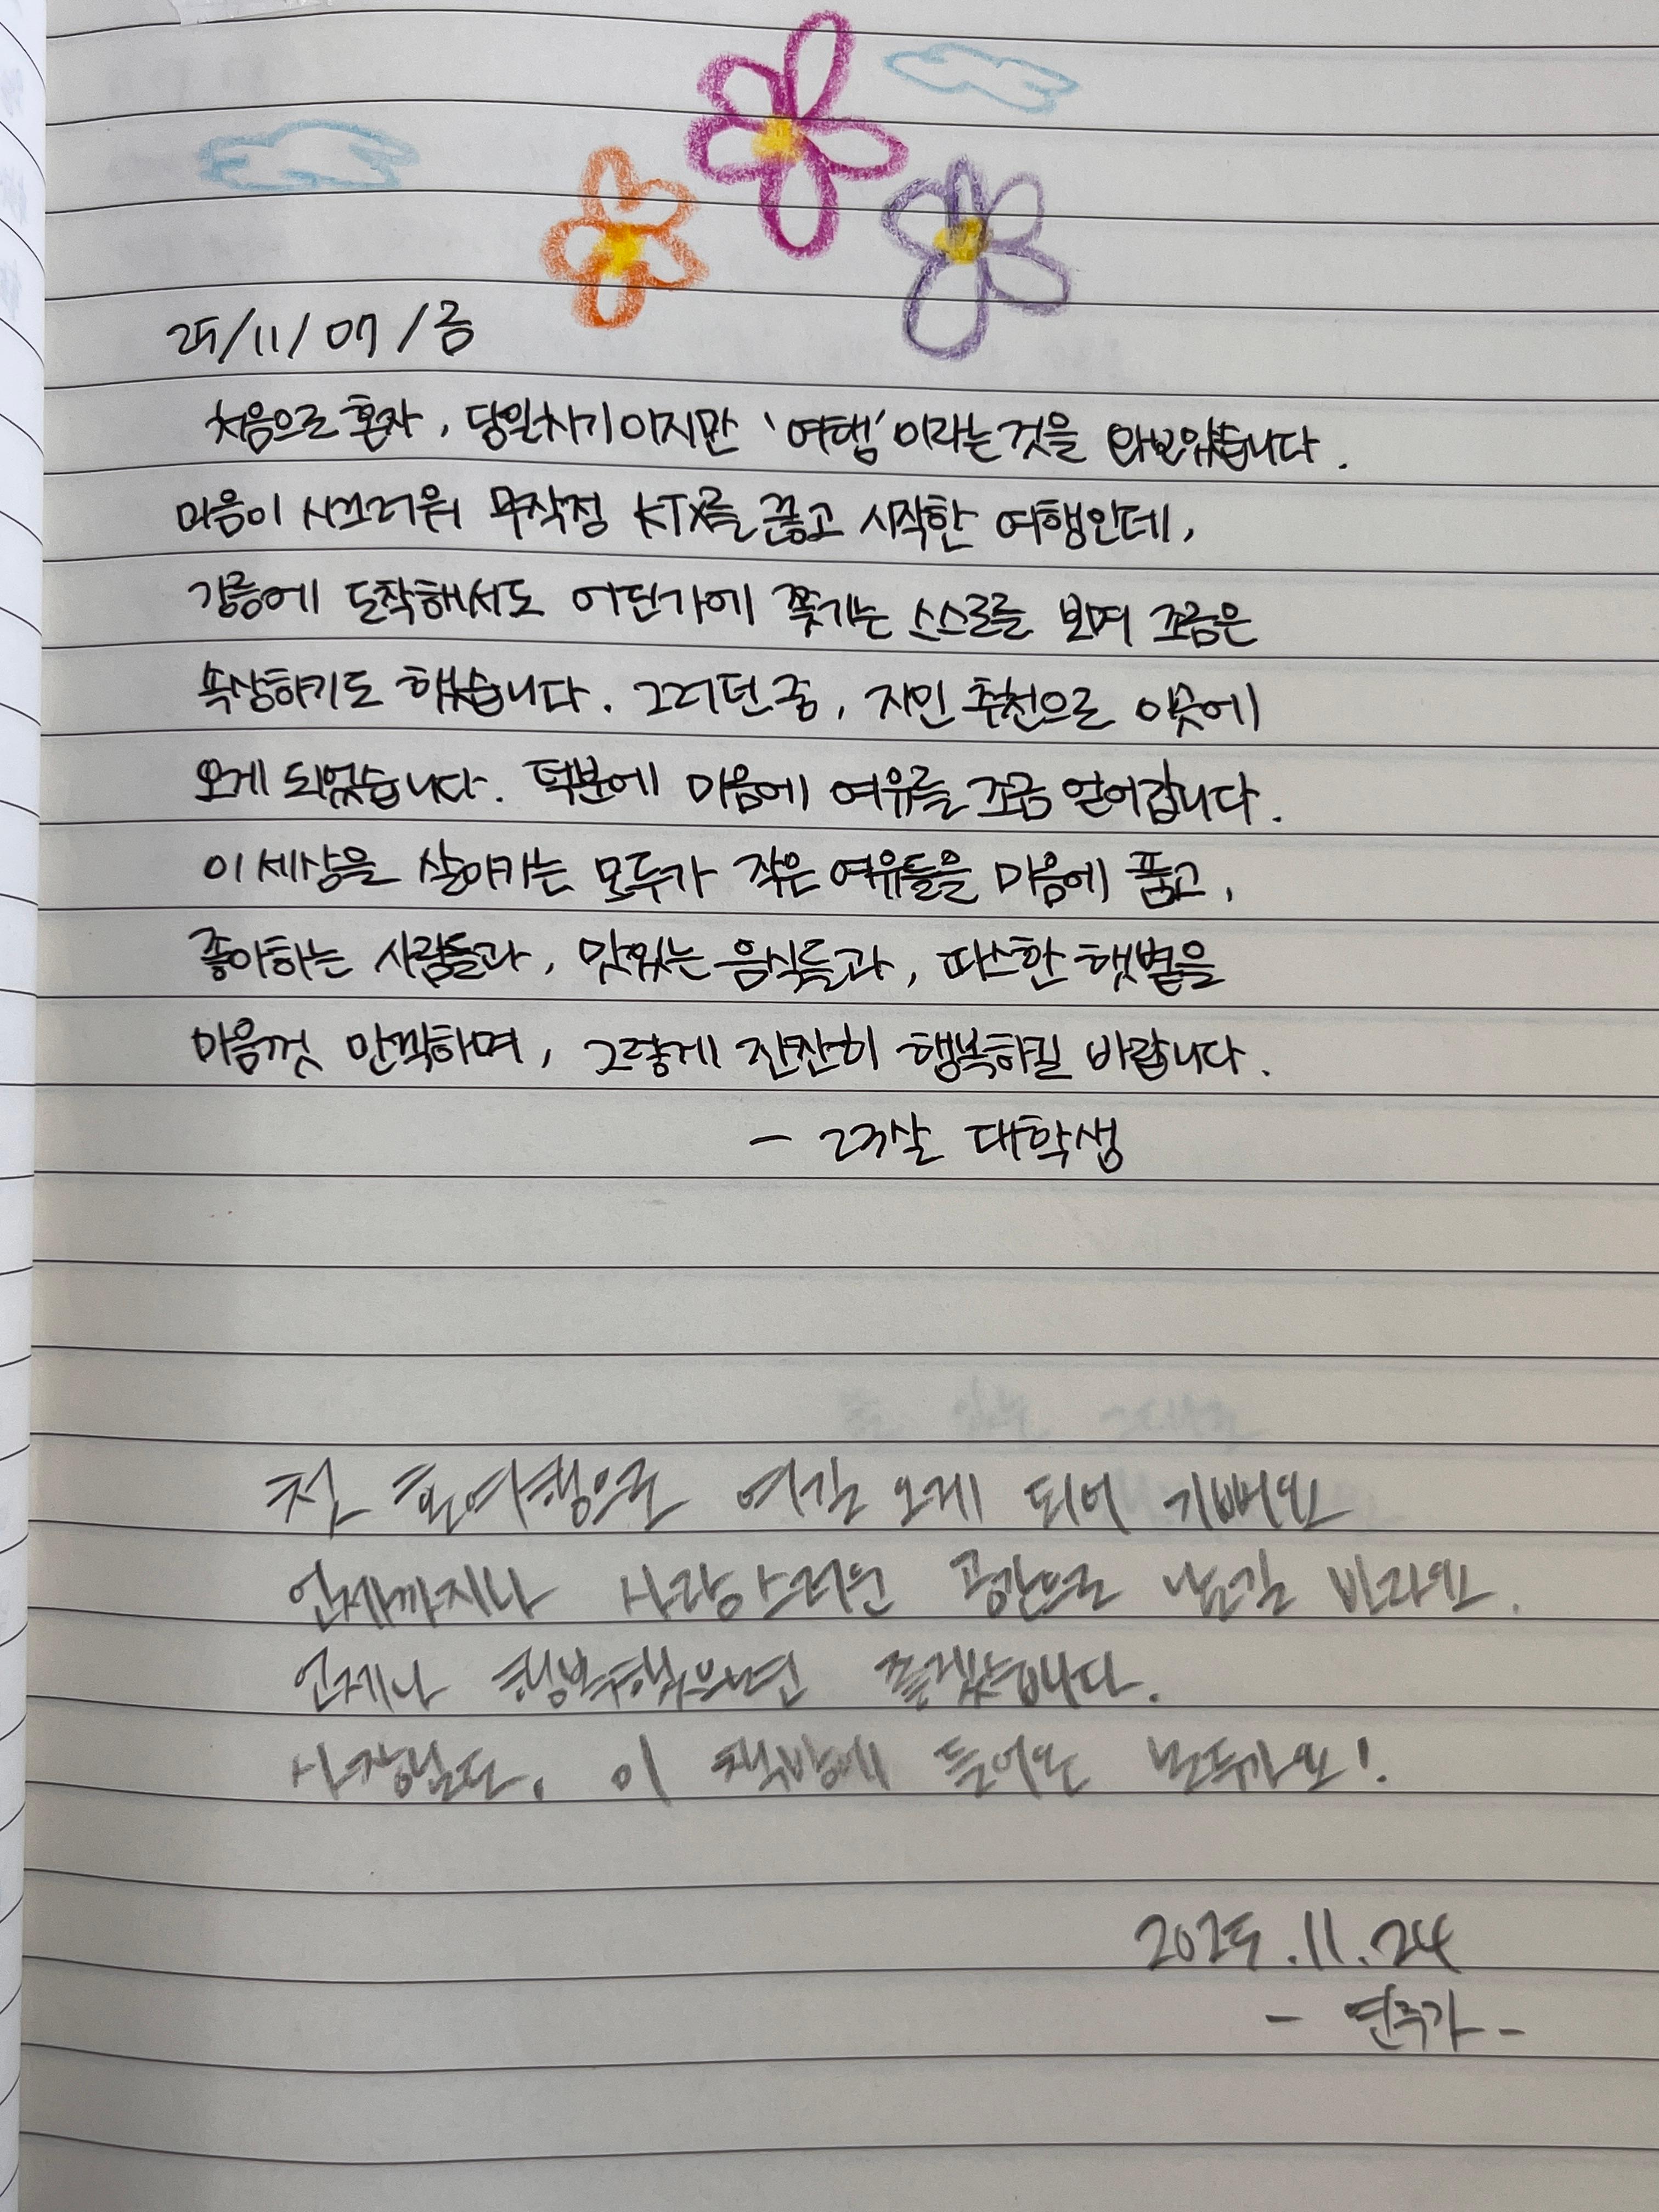 25/11/07/금
처음으로 혼자, 당일치기이지만 '여행'이라는 것을 와보았습니다.
마음이 시끄러워 무작정 KTX를 끊고 시작한 여행인데,
강릉에 도착해서도 어딘가에 쫓기는 스스로를 보며 조금은
속상하기도 했습니다. 그러던 중, 지인 추천으로 이곳에
오게 되었습니다. 덕분에 마음에 여유를 조금 얻어갑니다.
이 세상을 살아가는 모두가 작은 여유들을 마음에 품고,
좋아하는 사람들과, 맛있는 음식들과, 따스한 햇볕을
마음껏 만끽하며, 그렇게 잔잔히 행복하길 바랍니다.
- 23살 대학생
첫 혼여행으로 여길 오게 되어 기뻐요
언제까지나 사랑스러운 공간으로 남길 바라요.
언제나 행복했으면 좋겠습니다.
사장님도, 이 책방에 들어온 모두가요!
2025.11.24
- 연주가 -